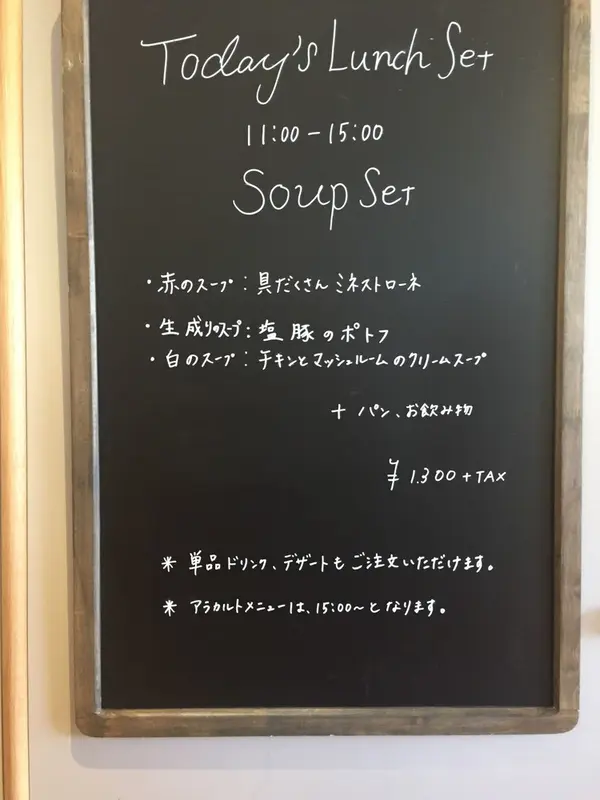 Today's Lunch Set
11:00-15:00
Soup Set
・赤のスープ:具だくさんミネストローネ
・生成りのスープ:塩豚のポトフ
・白のスープ:チキンとマッシュルームのクリームスープ
+ パン、お飲み物
¥1.300+TAX
* 単品ドリンク、デザートもご注文いただけます。
* アラカルトメニューは、15:00〜となります。